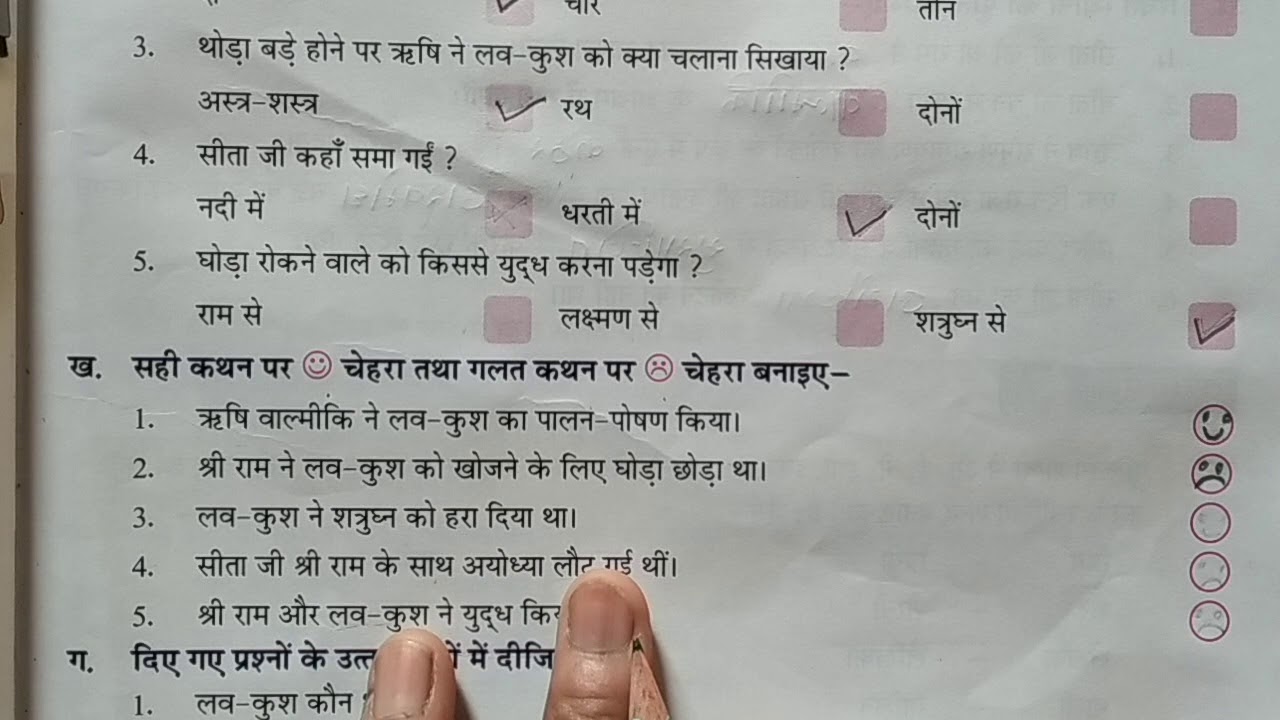 चार तीन
3. थोड़ा बड़े होने पर ऋषि ने लव-कुश को क्या चलाना सिखाया ?
अस्त्र-शस्त्र रथ दोनों
4. सीता जी कहाँ समा गईं ?
नदी में धरती में दोनों
5. घोड़ा रोकने वाले को किससे युद्ध करना पड़ेगा ?
राम से लक्ष्मण से शत्रुघ्न से
ख. सही कथन पर चेहरा तथा गलत कथन पर चेहरा बनाइए–
1. ऋषि वाल्मीकि ने लव-कुश का पालन-पोषण किया।
2. श्री राम ने लव-कुश को खोजने के लिए घोड़ा छोड़ा था।
3. लव-कुश ने शत्रुघ्न को हरा दिया था।
4. सीता जी श्री राम के साथ अयोध्या लौट गई थीं।
5. श्री राम और लव-कुश ने युद्ध
ग. दिए गए प्रश्नों के में
1. लव-कुश कौन